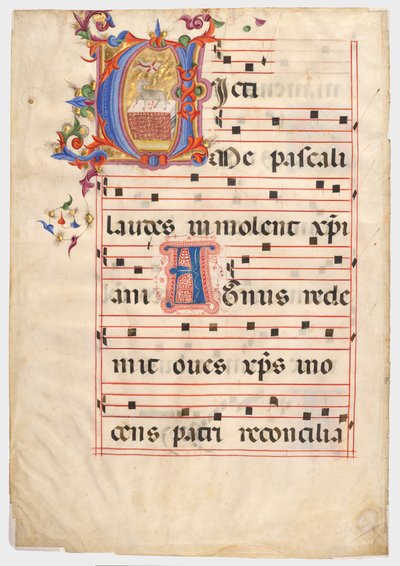 Victi
me pascali
laudes inmolent xp̃i
ani Agnus rede
mit oues xp̃s ino
cens patri reconcilia